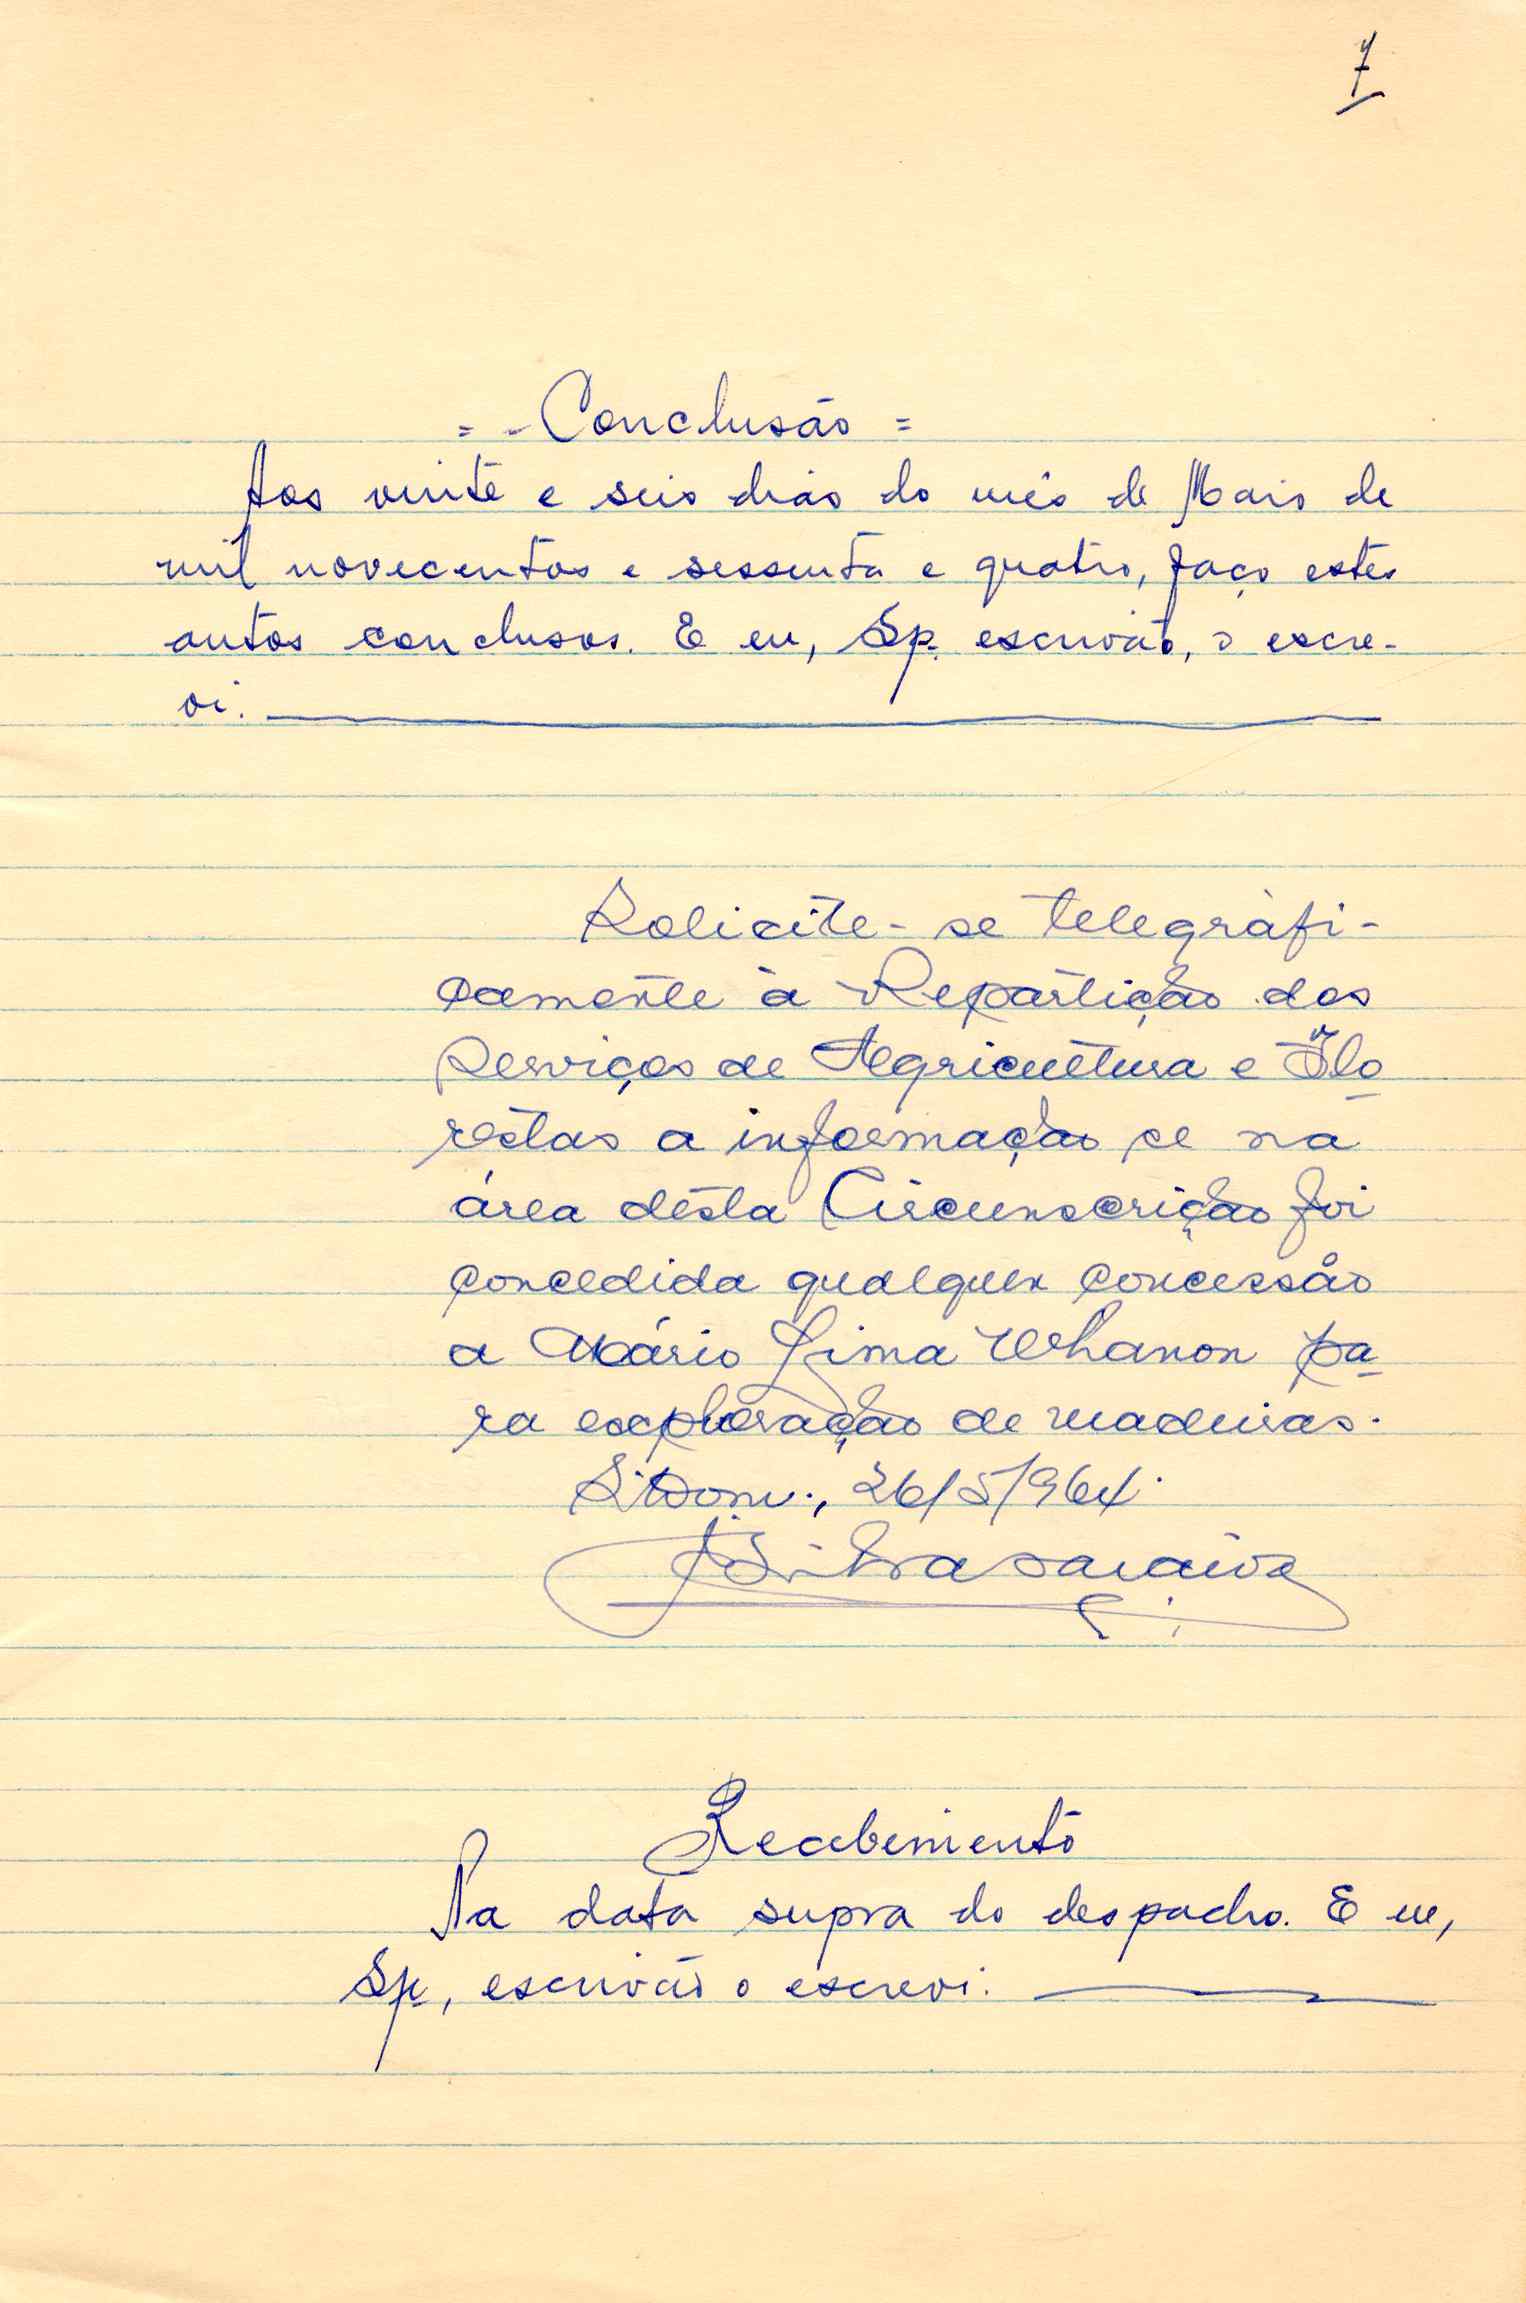 7
= - Conclusão =
Aos vinte e seis dias do mês de Maio de
mil novecentos e sessenta e quatro, faço estes
autos conclusos. E eu, Sp. escrivão, o escre-
vi.
Solicite-se telegràfi-
camente à Repartição dos
Serviços de Agricultura e Flo
restas a informação se na
área desta Circunscrição foi
concedida qualquer concessão
a Mário Lima Whanon pa-
ra exploração de madeiras.
S. Dom., 26/5/964.
Silva Saraiva
Recebimento
Na data supra do despacho. E eu,
Sp, escrivão o escrevi.